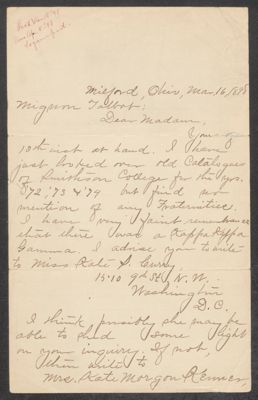 Milford, Ohio, Mar. 16/898
Mignon Talbot;
Dear Madam,
Yours
10th inst at hand. I have
just looked over old Catalogues
of Smithson College for the yrs.
'72, '73 & '74 but find no
mention of any Fraternities.
I have very faint remembrance
that there was a Kappa Kappa
Gamma I advise you to write
to Miss Kate S. Curry,
1510 9th St., N.W.
Washington
D.C.
I think possibly she may be
able to shed some light
on your inquiry. If not,
then write to
Mrs. Kate Morgon